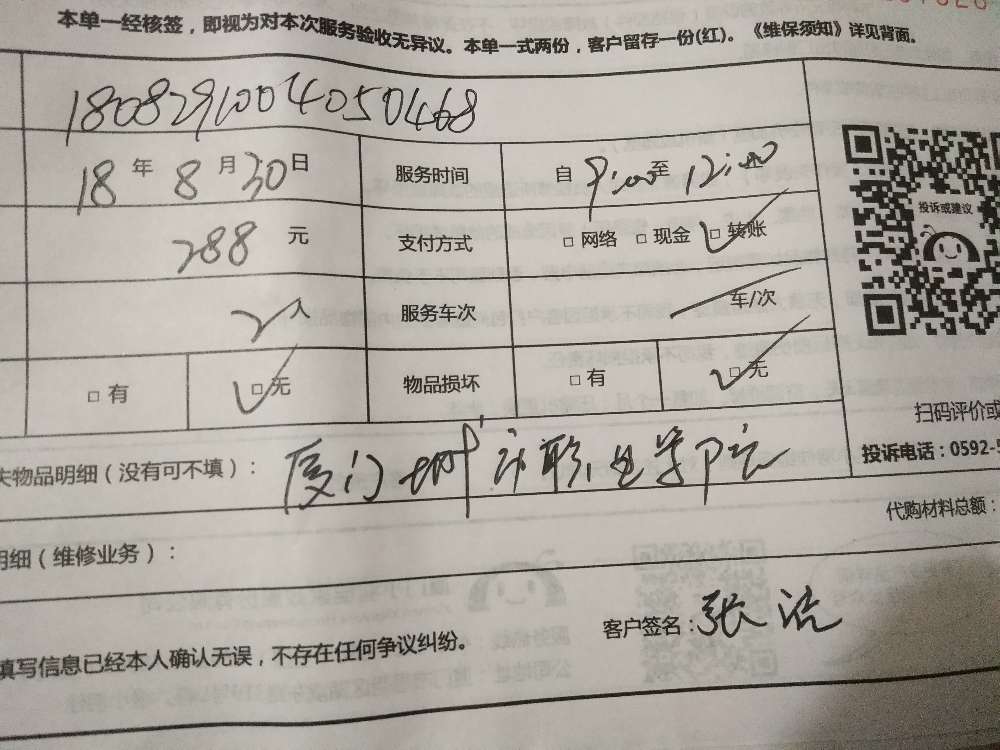 本单一经核签，即视为对本次服务验收无异议。本单一式两份，客户留存一份(红)。《维保须知》详见背面。
18082910040450468
18 年 8 月 30 日 服务时间 自 9:00 至 12:00
288 元 支付方式 □ 网络 □ 现金 □ 转账
投诉或建议
2 人 服务车次 车/次
□ 有 □ 无 物品损坏 □ 有 □ 无
扫码评价或
失物品明细（没有可不填）： 厦门城市职业学院
投诉电话：0592-5
代购材料总额：
明细（维修业务）：
客户签名：张
填写信息已经本人确认无误，不存在任何争议纠纷。